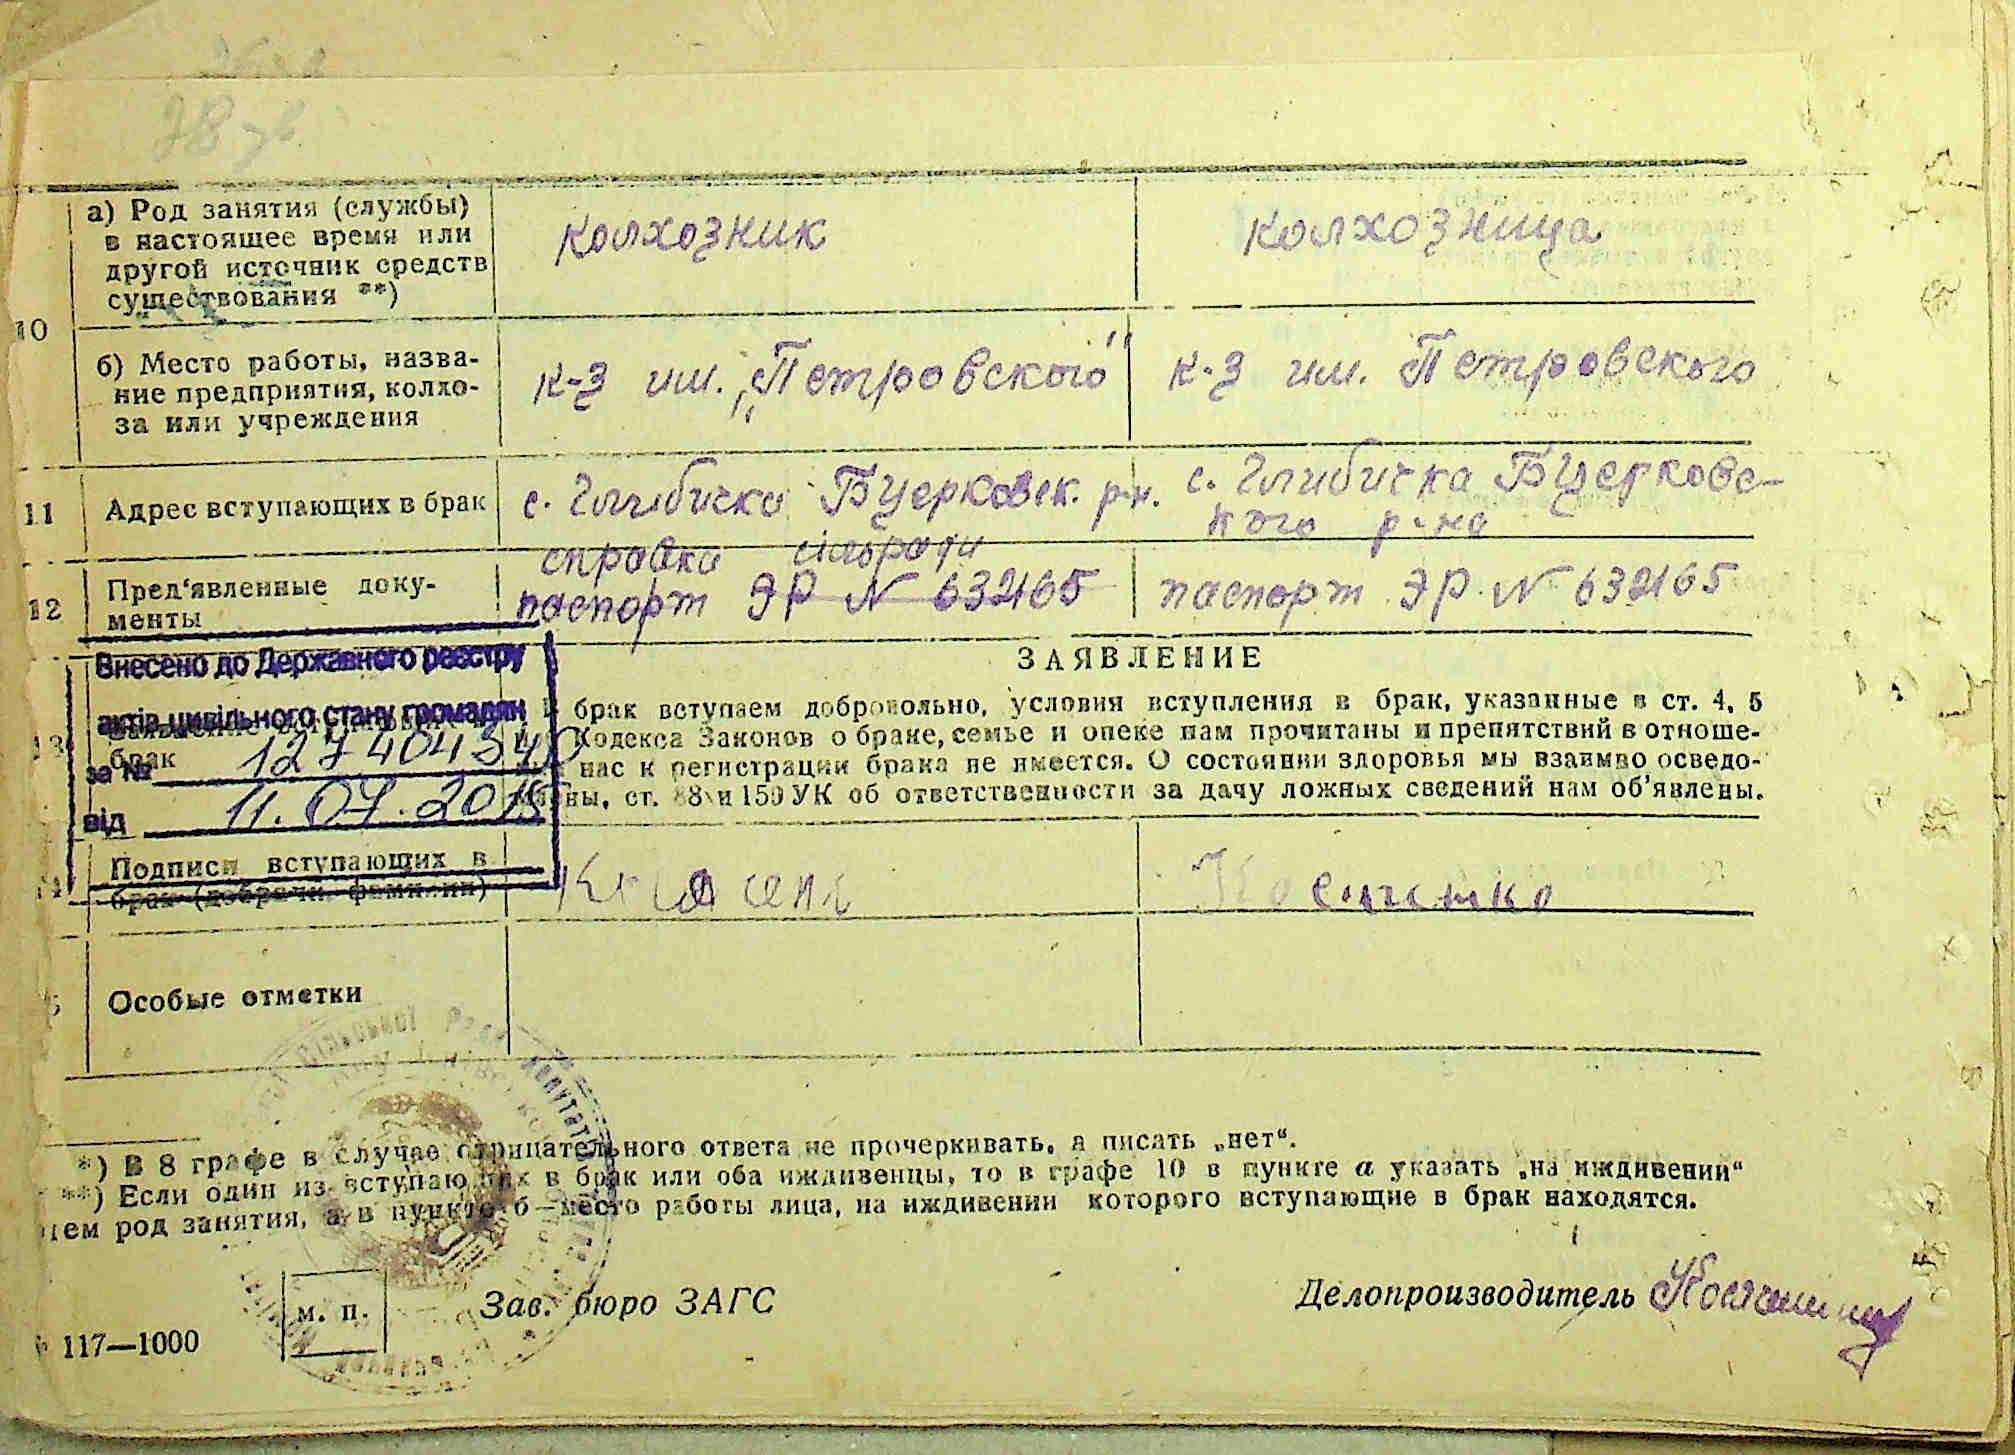 78 зв
а) Род занятия (службы)
в настоящее время или
другой источник средств
существования **)
колхозник
колхозница
10
б) Место работы, назва-
ние предприятия, колхо-
за или учреждения
к-з им. „Петровского"
к-з им. Петровского
11
Адрес вступающих в брак
с. Глибичка Буерковск. р-н.
с. Глибичка Буерковс-
кого р-на
справка сильради
12
Пред'явленные доку-
менты
паспорт ЭР № 632165
паспорт ЭР № 632165
Внесено до Державного реєстру
актів цивільного стану громадян
за №
від 11.07.20
13
брак
ЗАЯВЛЕНИЕ
В брак вступаем добровольно, условия вступления в брак, указанные в ст. 4, 5
Кодекса Законов о браке, семье и опеке нам прочитаны и препятствий в отноше-
нас к регистрации брака не имеется. О состоянии здоровья мы взаимно осведо-
ст. 88 и 159 УК об ответственности за дачу ложных сведений нам об'явлены.
14
Подписи вступающих в
брак (добрачн. фамилии)
Особые отметки
*) В 8 графе в случае отрицательного ответа не прочеркивать, а писать „нет".
**) Если один из вступающих в брак или оба иждивенцы, то в графе 10 в пункте а указать „на иждивении"
чем род занятия, а в пункте б—место работы лица, на иждивении которого вступающие в брак находятся.
м. п.
Зав. бюро ЗАГС
Делопроизводитель
117—1000